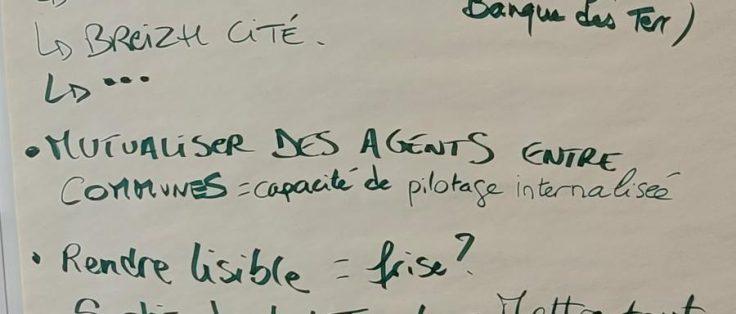 Banque des Terr)
↳ BREIZH CITÉ.
↳ ...
• MUTUALISER DES AGENTS ENTRE
COMMUNES = capacité de pilotage internalisée
• Rendre lisible = frise ?